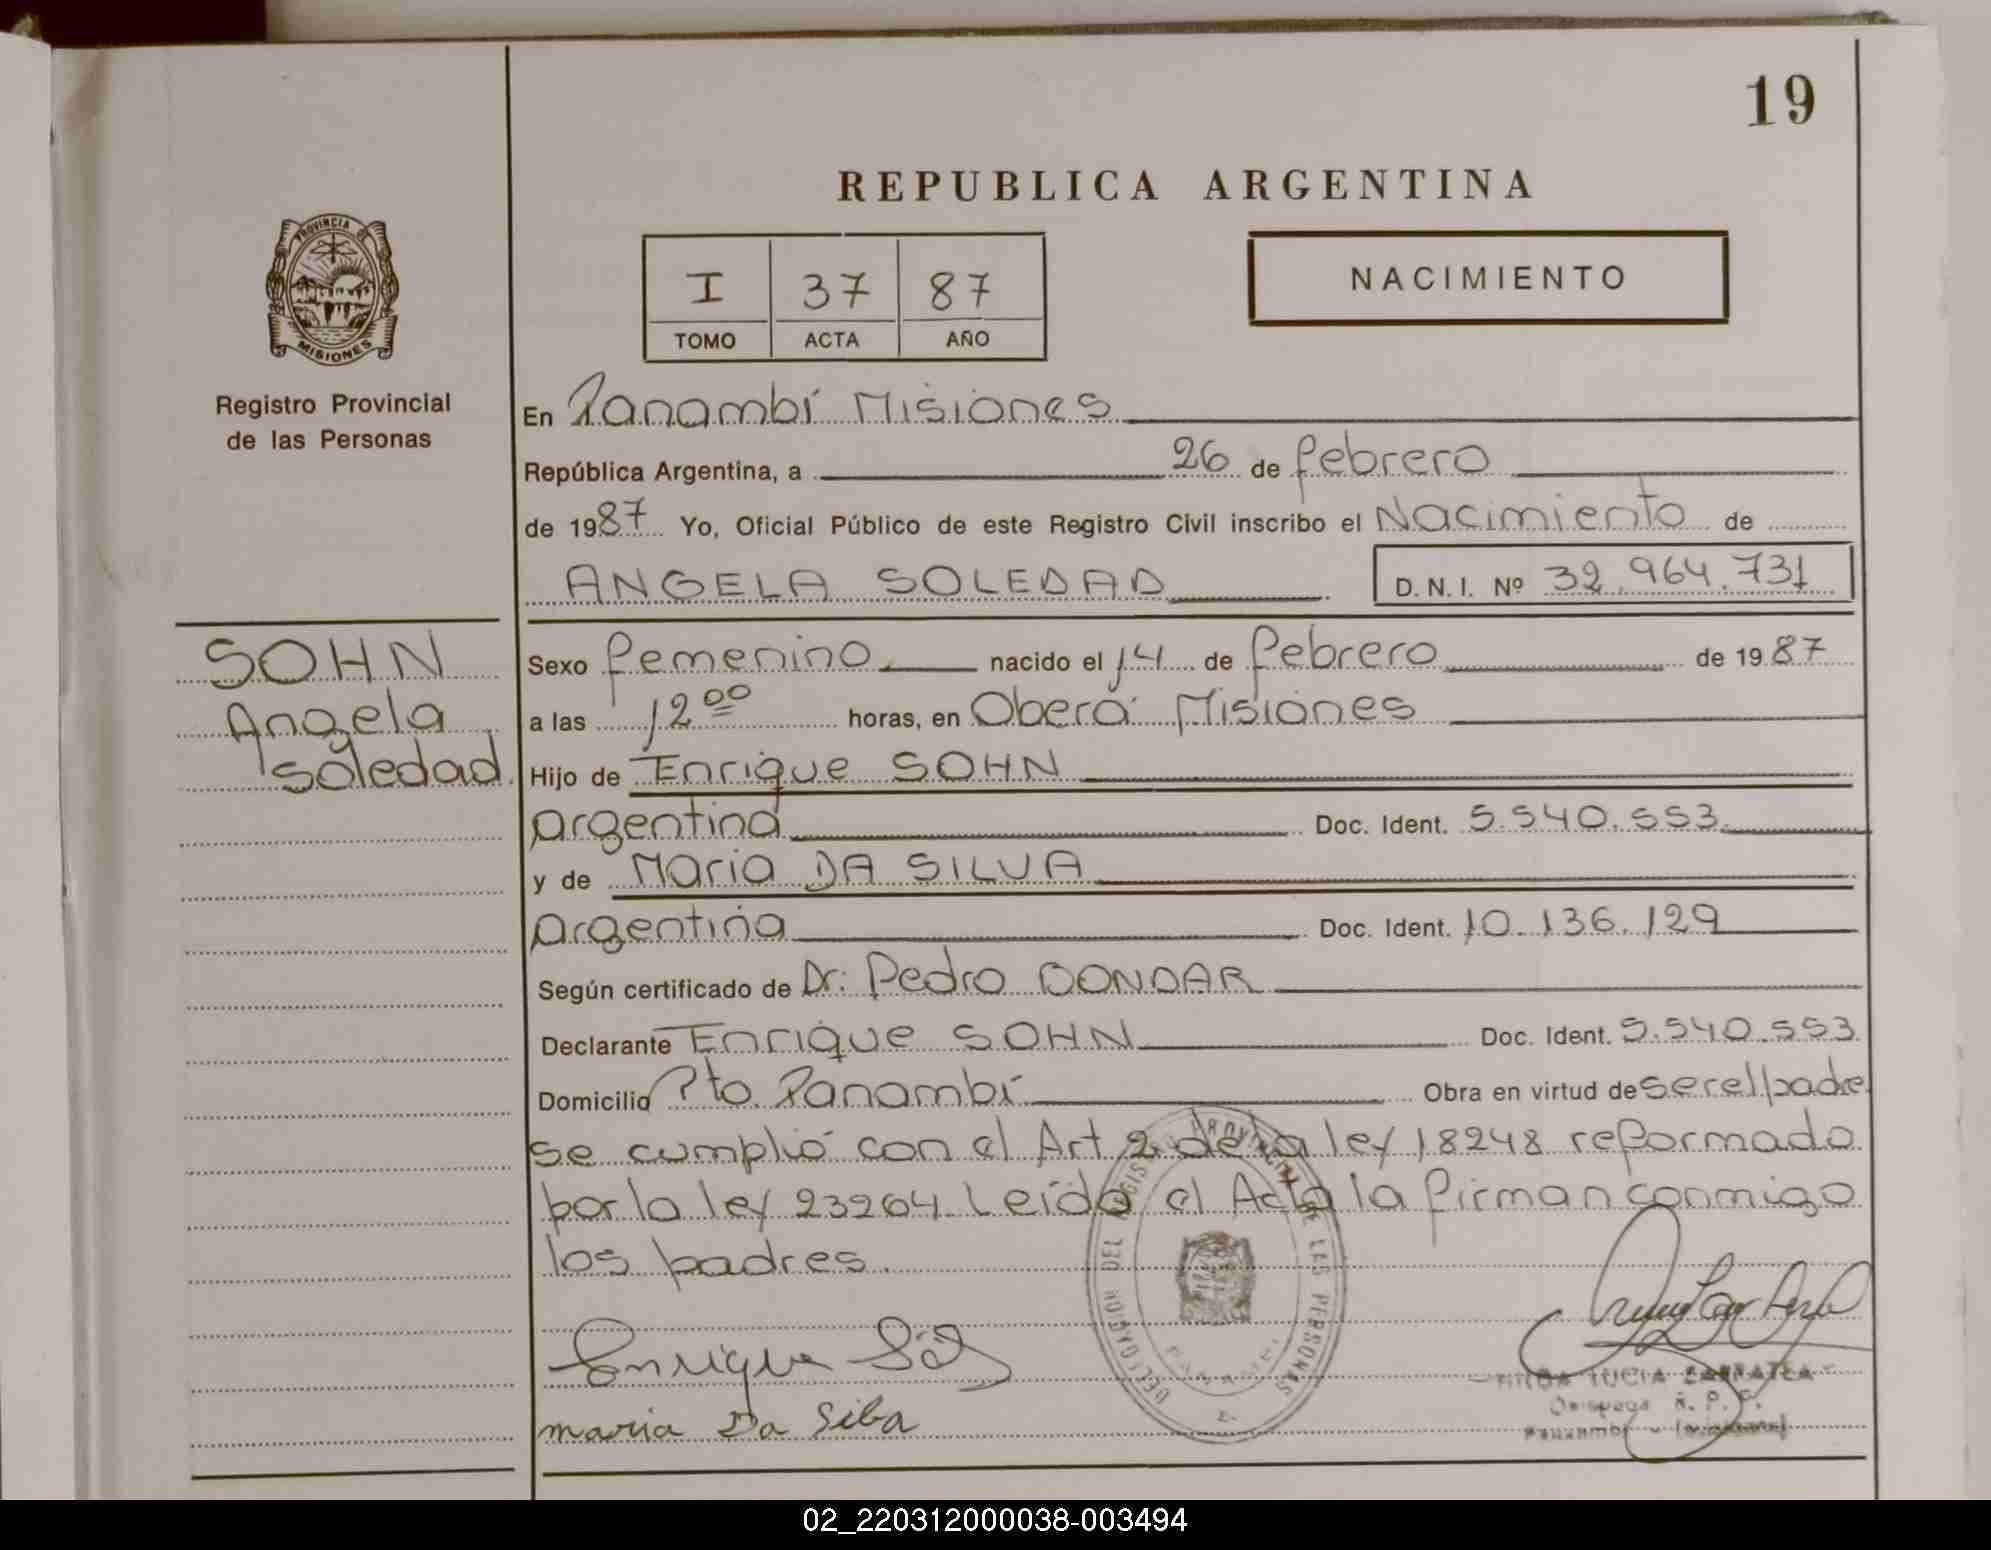 19
REPUBLICA ARGENTINA
PROVINCIA DE
MISIONES
I 37 87
TOMO ACTA AÑO
NACIMIENTO
Registro Provincial
de las Personas
En Panambí Misiones
República Argentina, a 26 de febrero
de 1987 Yo, Oficial Público de este Registro Civil inscribo el Nacimiento de
ANGELA SOLEDAD D.N.I. Nº 32.964.731
SOHN
Angela
Soledad
Sexo femenino nacido el 14 de febrero de 1987
a las 12 00 horas, en Oberá Misiones
Hijo de Enrique SOHN
argentina Doc. Ident. 5.540.553
y de Maria DA SILVA
argentina Doc. Ident. 10.136.129
Según certificado de Dr: Pedro BONDAR
Declarante Enrique SOHN Doc. Ident. 5.540.553
Domicilio Pto. Panambí Obra en virtud de ser el padre
se cumplió con el Art 2 de la ley 18248 reformado
por la ley 23264 Leída el Acta la firman conmigo
los padres.
DELEGACION DEL REGISTRO PROVINCIAL DE LAS PERSONAS
PANAMBI
Enrique
maria Da Silba
LUCIA
R. P. P.
Panambí - (Misiones)
02_220312000038-003494